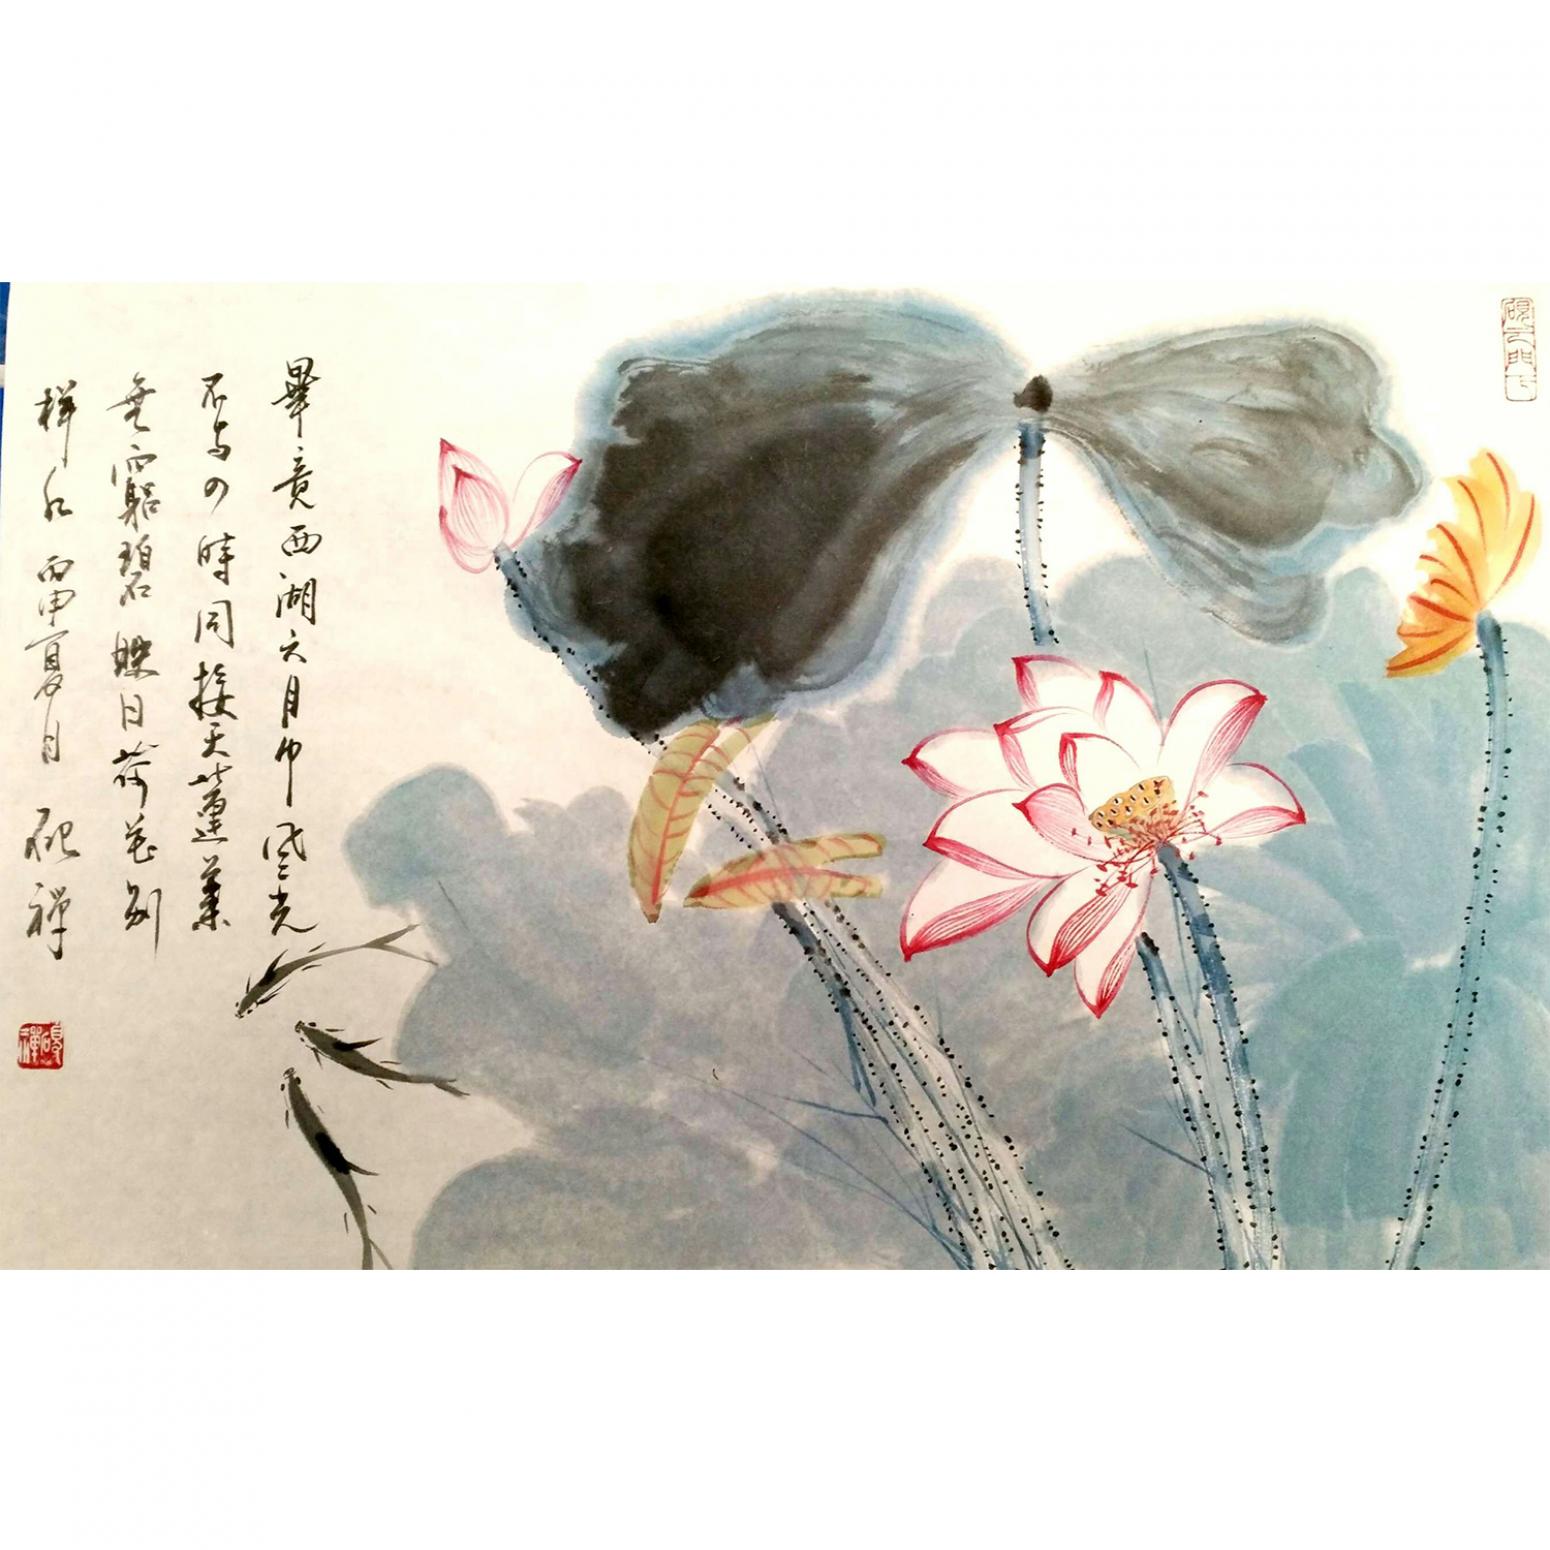 畢竟西湖六月中風光
不与四時同接天蓮葉
無窮碧映日荷花別
樣紅 丙申夏月 硯禪